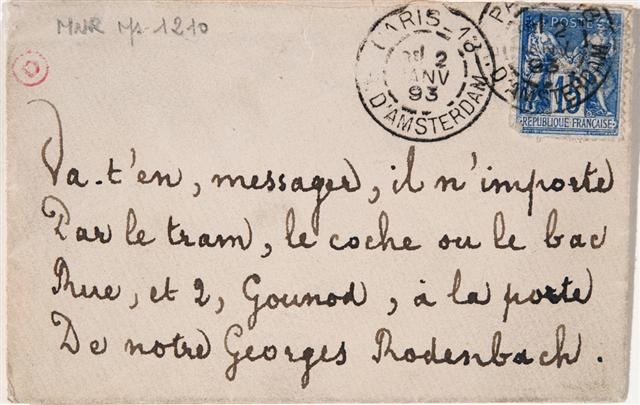 MNR Ms-1210
PARIS-18
2
JANV
93
D'AMSTERDAM
POSTE
2
93
D'AMSTERDAM
15
RÉPUBLIQUE FRANÇAISE
Va-t'en, messager, il n'importe
Par le tram, le coche ou le bac
Rue, et 2, Gounod, à la porte
De notre Georges Rodenbach.